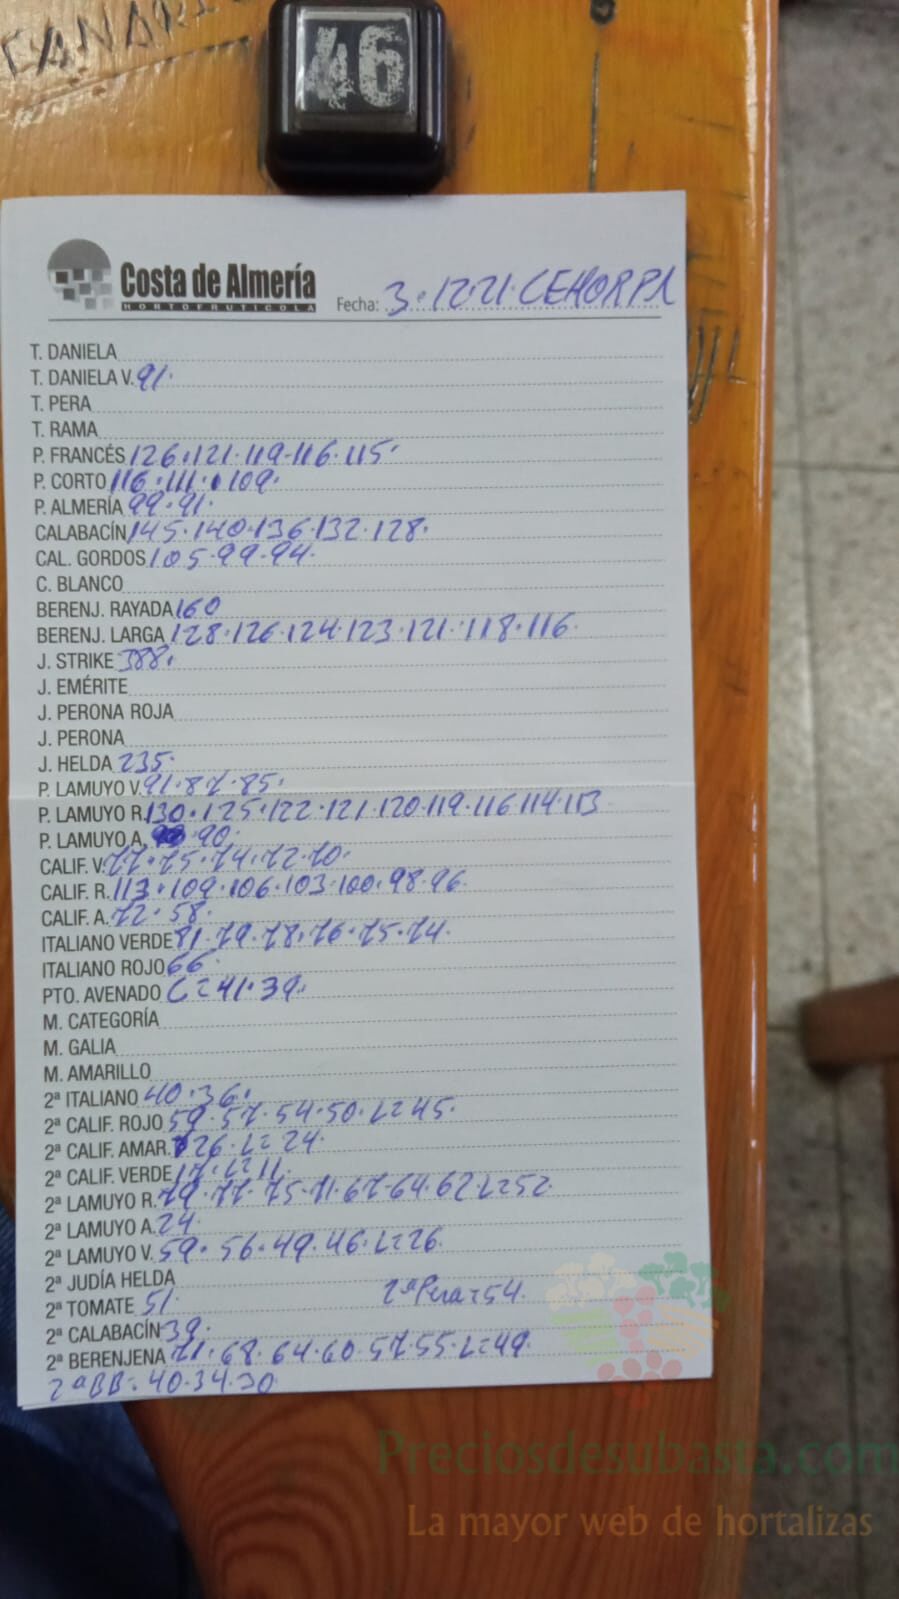 CANARI
46
Costa de Almería
HORTOFRUTICOLA
Fecha: 3·12 21·CEHORPA
T. DANIELA
T. DANIELA V. 91·
T. PERA
T. RAMA
P. FRANCÉS 126·121·119·116·115·
P. CORTO 116·111·109·
P. ALMERÍA 99·91·
CALABACÍN 145·140·136·132·128·
CAL. GORDOS 105·99·94·
C. BLANCO
BERENJ. RAYADA 160
BERENJ. LARGA 128·126·124·123·121·118·116·
J. STRIKE 388·
J. EMÉRITE
J. PERONA ROJA
J. PERONA
J. HELDA 235·
P. LAMUYO V. 91·87·85·
P. LAMUYO R. 130·125·122·121·120·119·116·114·113
P. LAMUYO A. 90·
CALIF. V. 77·75·74·72·70·
CALIF. R. 113·109·106·103·100·98·96·
CALIF. A. 72·58·
ITALIANO VERDE 81·79·78·76·75·74·
ITALIANO ROJO 66·
PTO. AVENADO C=41·39·
M. CATEGORÍA
M. GALIA
M. AMARILLO
2ª ITALIANO 40·36·
2ª CALIF. ROJO 59·57·54·50·L=45·
2ª CALIF. AMAR. 26·L=24·
2ª CALIF. VERDE 17·L=11·
2ª LAMUYO R. 79·77·75·71·67·64·62·L=52
2ª LAMUYO A. 24·
2ª LAMUYO V. 59·56·49·46·L=26·
2ª JUDÍA HELDA
2ª TOMATE 51· 2ª Pera=54·
2ª CALABACÍN 39·
2ª BERENJENA 71·68·64·60·57·55·L=49·
2ª BB=·40·34·30
Preciosdesubasta.com
La mayor web de hortalizas